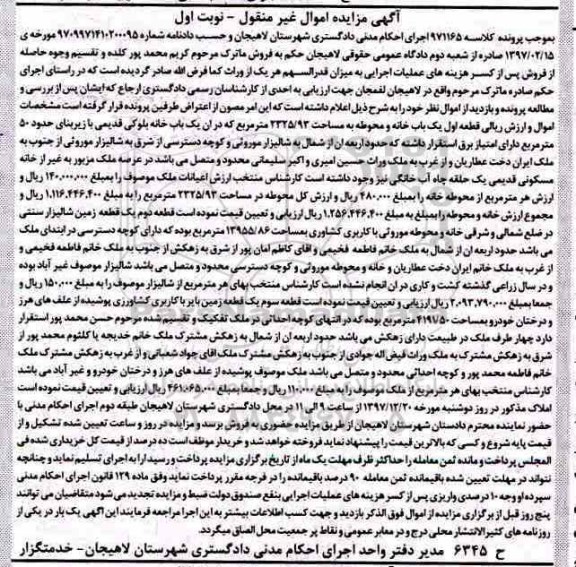 آگهی مزایده اموال غیر منقول - نوبت اول
بموجب پرونده کلاسه ۹۷۱۱۶۵ اجرای احکام مدنی دادگستری شهرستان لاهیجان و حسب دادنامه شماره ۹۷۰۹۹۷۱۴۱۰۲۰۰۰۹۵ مورخه ی
۱۳۹۷/۰۲/۱۵ صادره از شعبه دوم دادگاه عمومی حقوقی لاهیجان حکم به فروش ماترک مرحوم کریم محمد پور کلده و تقسیم وجوه حاصله
از فروش پس از کسر هزینه های عملیات اجرایی به میزان قدرالسهم هر یک از وراث کما فرض الله صادر گردیده است که در راستای اجرای
حکم صادره ماترک مرحوم واقع در لاهیجان لفمجان جهت ارزیابی به احدی از کارشناسان رسمی دادگستری ارجاع که ایشان پس از بررسی و
مطالعه پرونده و بازدید از اموال نظر خود را به شرح ذیل اعلام داشته است که این امر مصون از اعتراض طرفین پرونده قرار گرفته است مشخصات
اموال و ارزش ریالی قطعه اول یک باب خانه و محوطه به مساحت ۲۳۲۵/۹۳ مترمربع که در آن یک باب خانه بلوکی قدیمی با زیربنای حدود ۵۰
مترمربع دارای امتیاز برق استقرار داشته که حدود اربعه آن از شمال به شالیزار موروثی و کوچه دسترسی از شرق به شالیزار موروثی از جنوب به
ملک ایران دخت عطاریان و از غرب به ملک وراث حسین امیری و اکبر سلیمانی محدود و متصل می باشد در عرصه ملک مزبور به غیر از خانه
مسکونی قدیمی یک حلقه چاه آب خانگی نیز وجود داشته است کارشناس منتخب ارزش اعیانات ملک موصوف را بمبلغ ۱۴۰.۰۰۰.۰۰۰ ریال و
ارزش هر مترمربع از محوطه خانه را بمبلغ ۴۸۰.۰۰۰ ریال و ارزش کل محوطه در مساحت ۲۳۲۵/۹۳ مترمربع را به مبلغ ۱.۱۱۶.۴۴۶.۴۰۰ ریال و
مجموع ارزش خانه و محوطه را بمبلغ به مبلغ ۱.۲۵۶.۴۴۶.۴۰۰ ریال ارزیابی و تعیین قیمت نموده است قطعه دوم یک قطعه زمین شالیزار سنتی
در ضلع شمالی و شرقی خانه و محوطه موروثی با کاربری کشاورزی بمساحت ۱۳۹۵۵/۸۶ مترمربع بوده که دارای کوچه دسترسی در ابتدای ملک
می باشد حدود اربعه آن از شمال به ملک خانم فاطمه فخیمی و آقای کاظم امان پور از شرق به زهکش از جنوب به ملک خانم فاطمه فخیمی و
از غرب به ملک خانم ایران دخت عطاریان و خانه و محوطه موروثی و کوچه دسترسی محدود و متصل می باشد شالیزار موصوف غیر آباد بوده
و در سال زراعی گذشته کشت و کاری در آن انجام نشده است کارشناس منتخب بهای هر مترمربع از شالیزار موصوف را به مبلغ ۱۵۰.۰۰۰ ریال و
جمعا بمبلغ ۲.۰۹۳.۷۹۰.۰۰۰ ریال ارزیابی و تعیین قیمت نموده است قطعه سوم یک قطعه زمین بایر با کاربری کشاورزی پوشیده از علف های هرز
و درختان خودرو بمساحت ۴۱۹۱/۵۰ مترمربع بوده که در انتهای کوچه احداثی در ملک تفکیک و تقسیم شده مرحوم حسن محمد پور استقرار
دارد چهار طرف ملک در طبیعت دارای زهکش می باشد حدود اربعه آن از شمال به زهکش مشترک ملک خانم خدیجه یا کلثوم محمد پور از
شرق به زهکش مشترک به ملک وراث فیض اله جوادی از جنوب به زهکش مشترک ملک آقای جواد شعبانی و از غرب به زهکش مشترک ملک
خانم فاطمه محمد پور و کوچه احداثی محدود و متصل می باشد ملک موصوف پوشیده از علف های هرز و درختان خودرو و غیر آباد می باشد
کارشناس منتخب بهای هر مترمربع از ملک موصوف را به مبلغ ۱۱۰.۰۰۰ ریال و جمعا به مبلغ ۴۶۱.۰۶۵.۰۰۰ ریال ارزیابی و تعیین قیمت نموده است
املاک مذکور در روز دوشنبه مورخه ۱۳۹۷/۱۲/۲۰ از ساعت ۹ الی ۱۱ در محل دادگستری شهرستان لاهیجان طبقه دوم اجرای احکام مدنی با
حضور نماینده محترم دادستان شهرستان لاهیجان از طریق مزایده حضوری به فروش برسد و مزایده در روز و ساعت تعیین شده تشکیل و از
قیمت پایه شروع و کسی که بالاترین قیمت را پیشنهاد نماید فروخته خواهد شد و خریدار موظف است ده درصد از قیمت کل خریداری شده فی
المجلس پرداخت و مانده ثمن معامله را حداکثر ظرف مهلت یک ماه از تاریخ برگزاری مزایده پرداخت و رسید آرا به اجرای تسلیم نماید و چنانچه
نتواند در مهلت تعیین شده باقیمانده ثمن معامله ۹۰ درصد باقیمانده را در فرجه مقرر پرداخت نماید وفق ماده ۱۲۹ قانون اجرای احکام مدنی
سپرده او وجه ۱۰ درصدی واریزی پس از کسر هزینه های عملیات اجرایی بنفع صندوق دولت ضبط و مزایده تجدید می شود متقاضیان می توانند
پنج روز قبل از برگزاری مزایده از اموال فوق الذکر بازدید و جهت کسب اطلاعات بیشتر به این اجرا مراجعه فرمایند این آگهی یک بار در یکی از
روزنامه های کثیرالانتشار محلی درج و در معابر عمومی و نقاط پر جمعیت محل الصاق میگردد.
ح ۶۳۴۵ مدیر دفتر واحد اجرای احکام مدنی دادگستری شهرستان لاهیجان - خدمتگزار